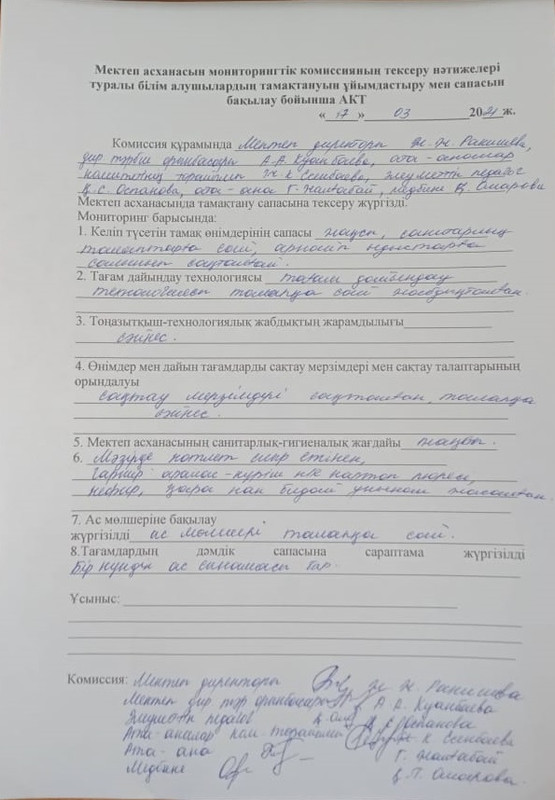 Мектеп асханасын мониторингтік комиссияның тексеру нәтижелері
туралы білім алушылардың тамақтануын ұйымдастыру мен сапасын
бақылау бойынша АКТ
« 17 » 03 2021 ж.
Комиссия құрамында Мектеп директоры Ж. Ж. Ракишева,
дир тәрбие орынбасары А.А. Куанбаева, ата-аналар
комитетінің төрайымы Ж.К. Есенбаева, әлеуметтік педагог
Қ.С. Оспанова, ата-ана Г. Жантабай, медбике Қ. Омарова
Мектеп асханасында тамақтану сапасына тексеру жүргізді.
Мониторинг барысында:
1. Келіп түсетін тамақ өнімдерінің сапасы жақсы, санитарлық
талаптарға сай, арнайы ыдыстарға
салынып сақталған.
2. Тағам дайындау технологиясы тағам дайындау
технологиясы талапқа сай
3. Тоңазытқыш-технологиялық жабдықтың жарамдылығы
сәйкес.
4. Өнімдер мен дайын тағамдарды сақтау мерзімдері мен сақтау талаптарының
орындалуы
сақтау мерзімдері сақталған, талапқа
сәйкес.
5. Мектеп асханасының санитарлық-гигиеналық жағдайы жақсы.
6. Мәзірде котлет сиыр етінен,
гарнир: аралас - күріш пе картоп пюресі,
кефир, қара нан бидай ұнынан жасалған.
7. Ас мөлшеріне бақылау
жүргізілді ас мөлшері талапқа сай.
8.Тағамдардың дәмдік сапасына сараптама жүргізілді
Бір күндік ас сынамасы бар.
Ұсыныс:
Комиссия: Мектеп директоры Ж. Ж. Ракишева
Мектеп дир тәр орынбасары А. А. Куанбаева
Әлеуметтік педагог Қ. С. Оспанова
Ата-аналар ком. төрайымы Ж. К Есенбаева
Ата-ана Г. Жантабай
Медбике Қ. Т. Омарова.